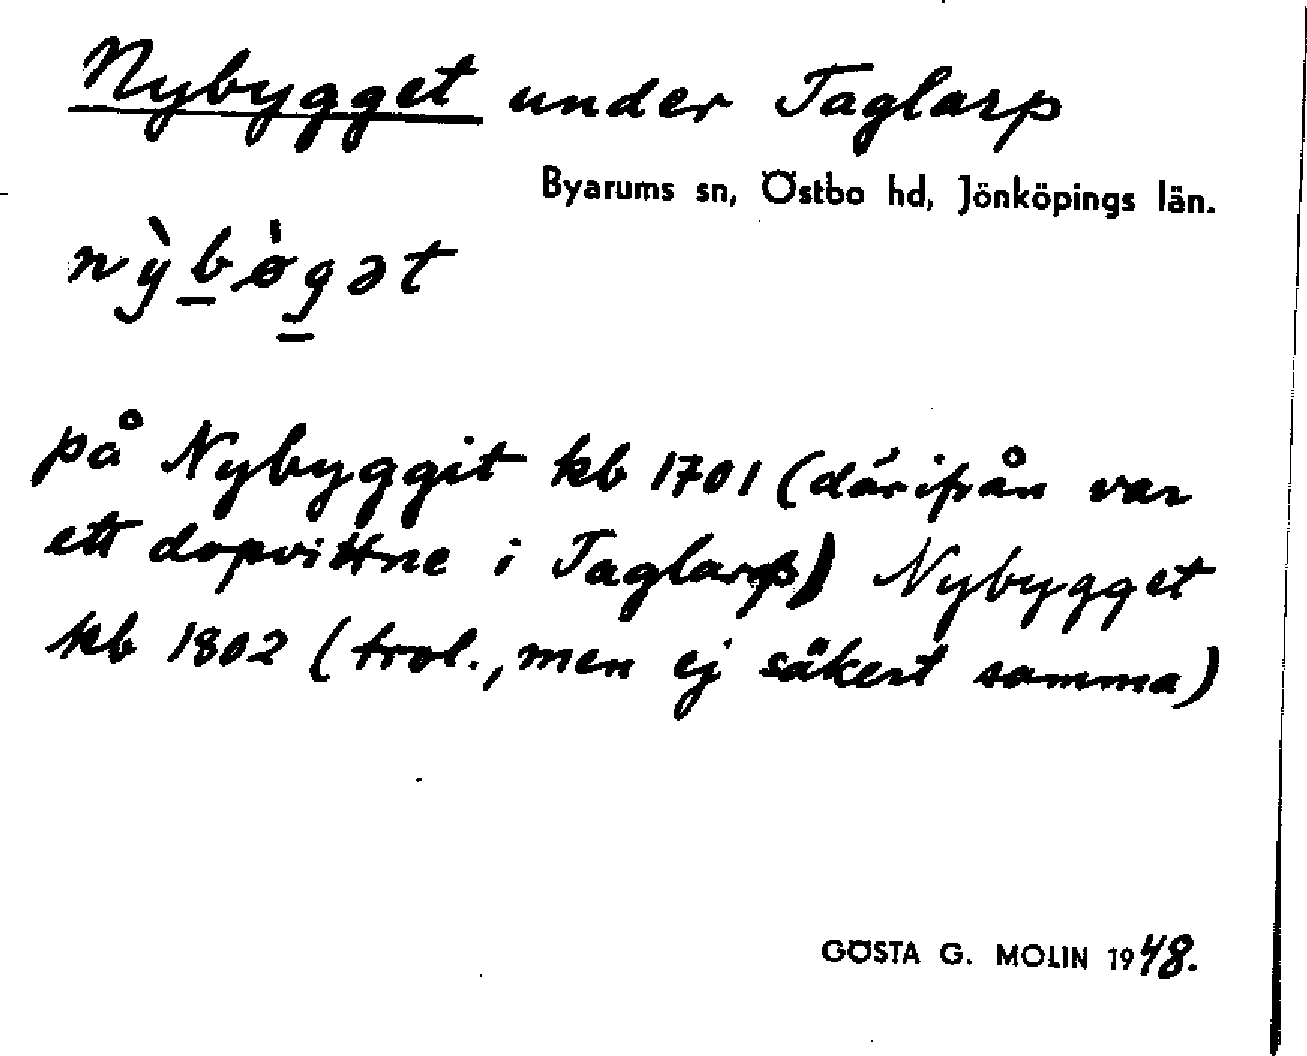 Nybygget under Taglarp
Byarums sn, Östbo hd, Jönköpings län.
nỳbø̀gət
på Nybyggit kb 1701 (därifrån var
ett dopvittne i Taglarp) Nybygget
kb 1802 (trol., men ej säkert samma)
GÖSTA G. MOLIN 1948.